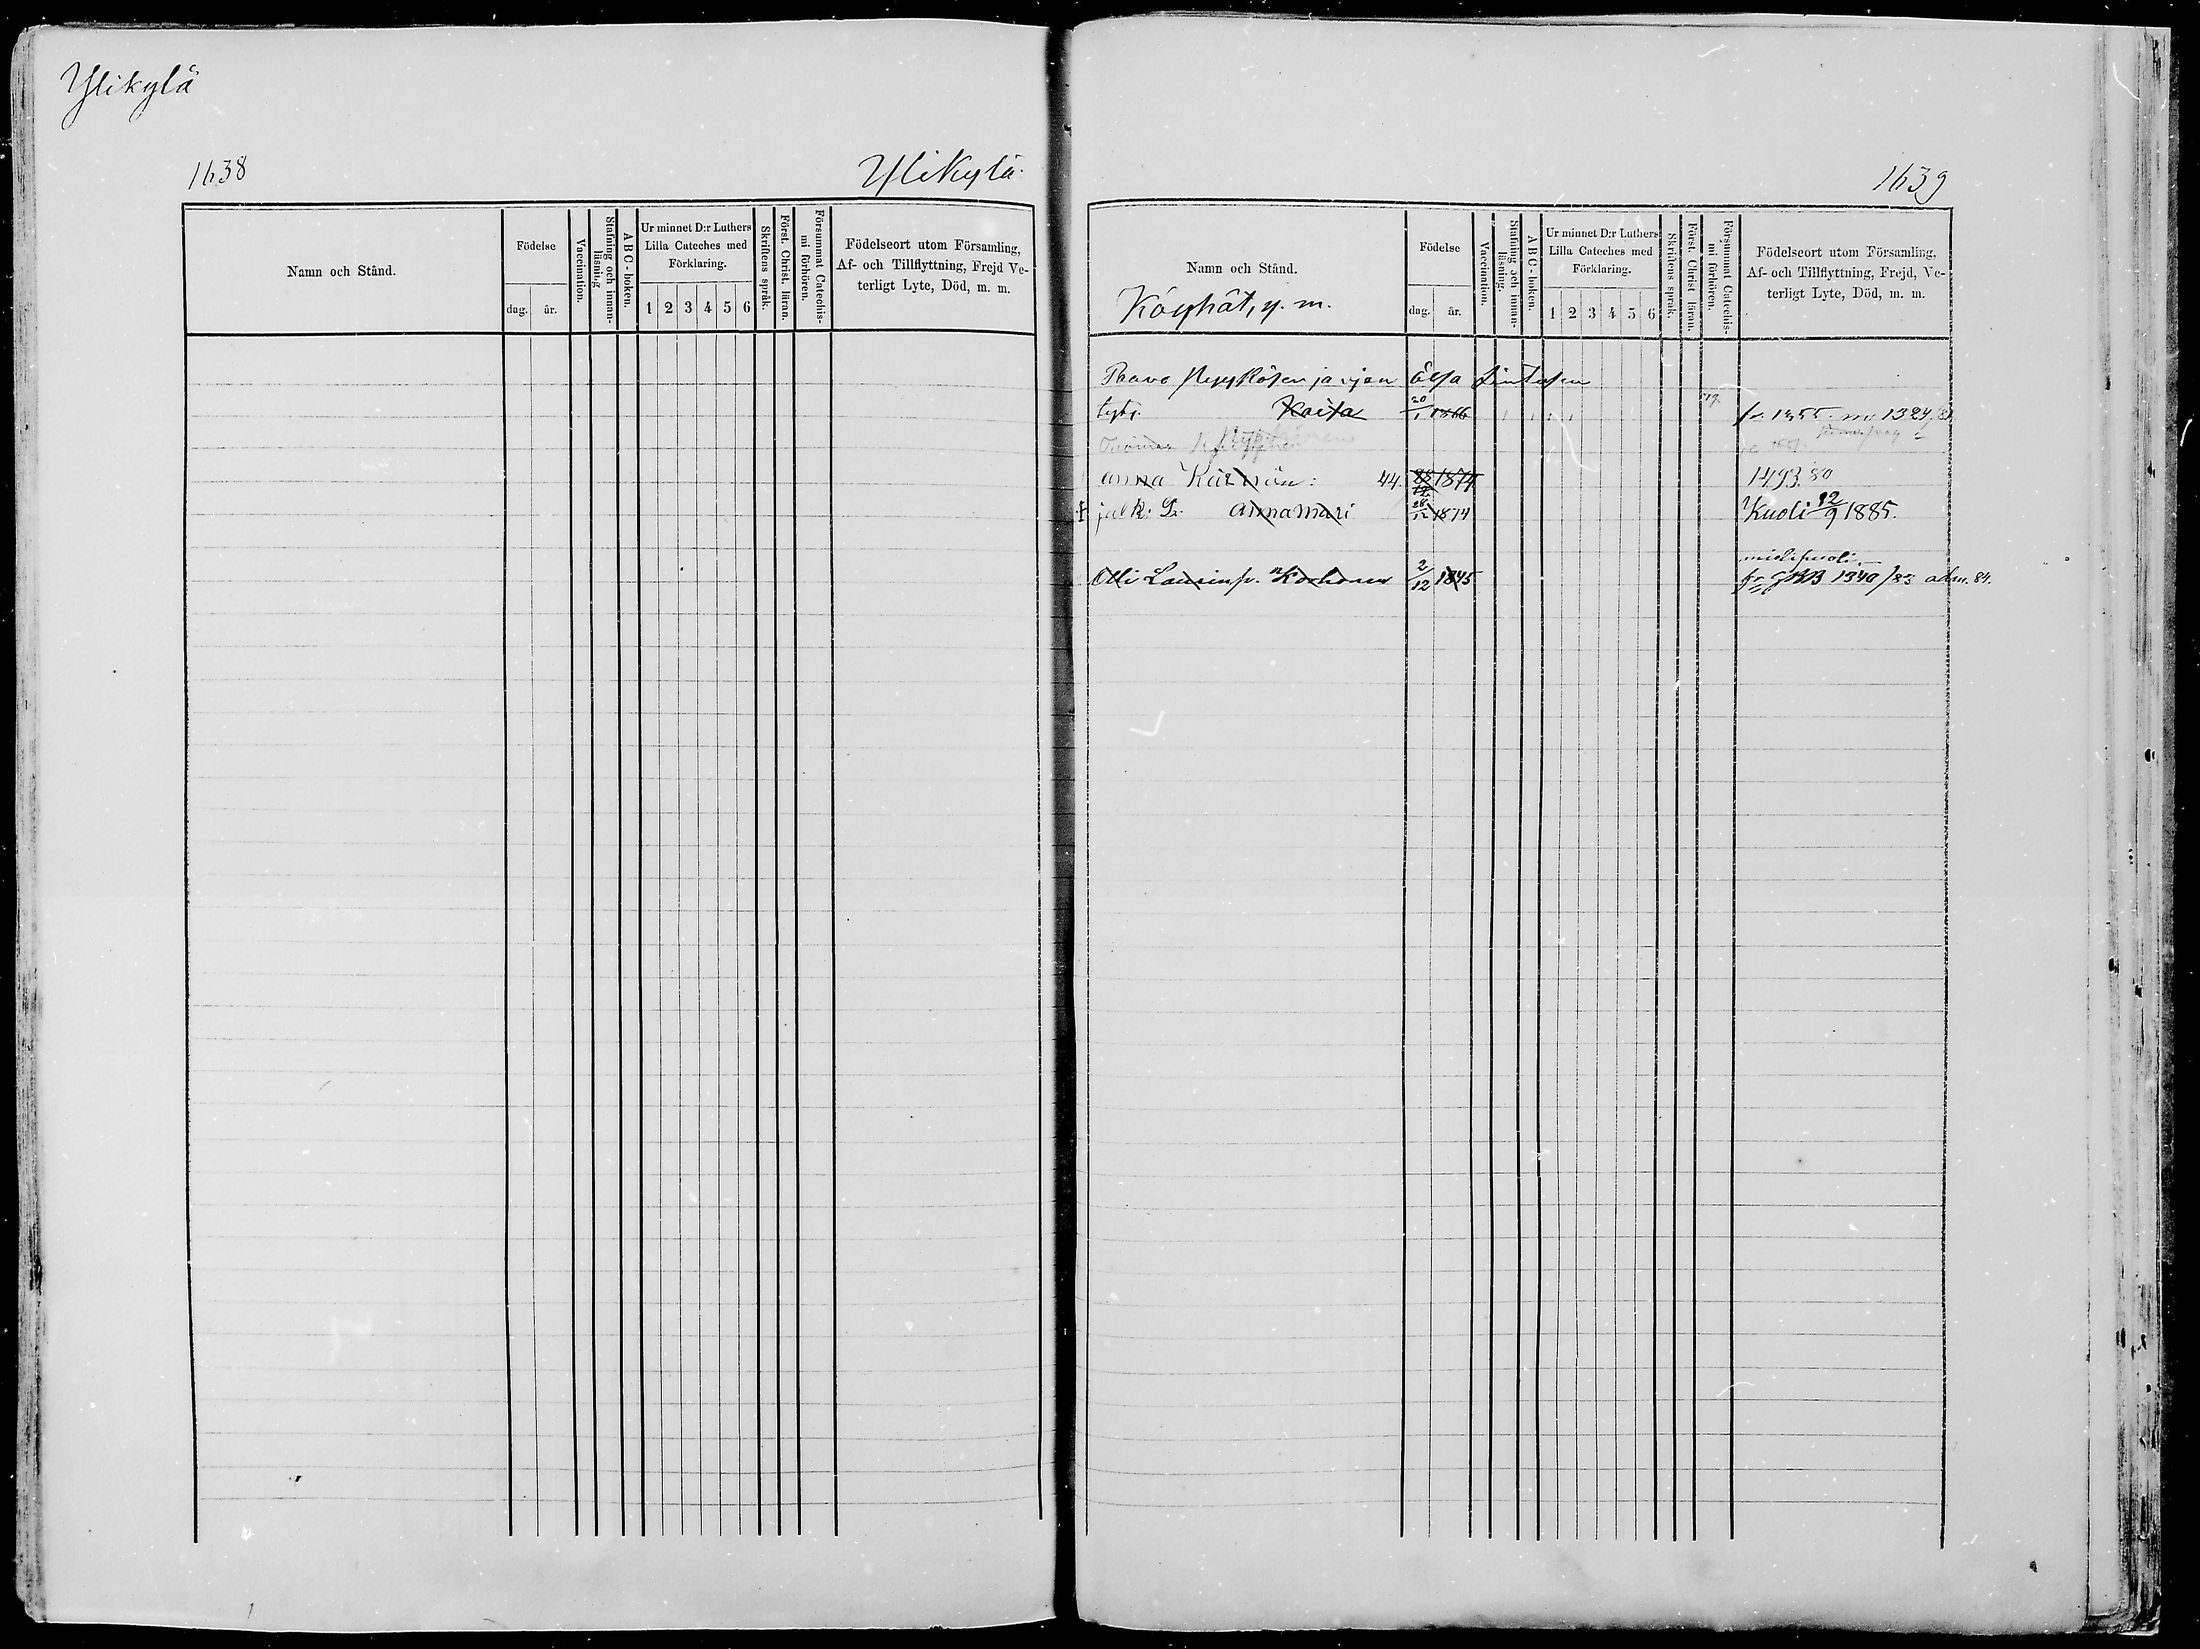 Ylikylä
1638
Ylikylä
Namn och Stånd.
Födelse
dag.
år.
Vaccination.
Stafning och innan-läsning
A B C - boken.
Ur minnet D:r Luthers Lilla Cateches med Förklaring.
1 2 3 4 5 6
Skriftens språk.
Först. Christ. läran.
Försummat Catechis-mi förhören.
Födelseort utom Församling,
Af- och Tillflyttning, Frejd Ve-
terligt Lyte, Död, m. m.
1639
Namn och Stånd.
Köyhät, y. m.
Födelse
dag.
år.
Vaccination.
Stafning och innan-läsning.
A B C - boken.
Ur minnet D:r Luthers Lilla Cateches med Förklaring.
1 2 3 4 5 6
Skriftens språk.
Först. Christ läran.
Försummat Catechis-mi förhören.
Födelseort utom Församling,
Af- och Tillflyttning, Frejd, Ve-
terligt Lyte, Död, m. m.
Paavo ja vjan
tytt. Kaisa 20/1 1866 1355 1324/81
Anna 44. 28/12 1874 1493 80
Annamari 28/12 1874 Kuoli 12/9 1885.
mielipuoli
Olli Laurinp. Korhonen 2/12 1845 1340/83 adm. 84.